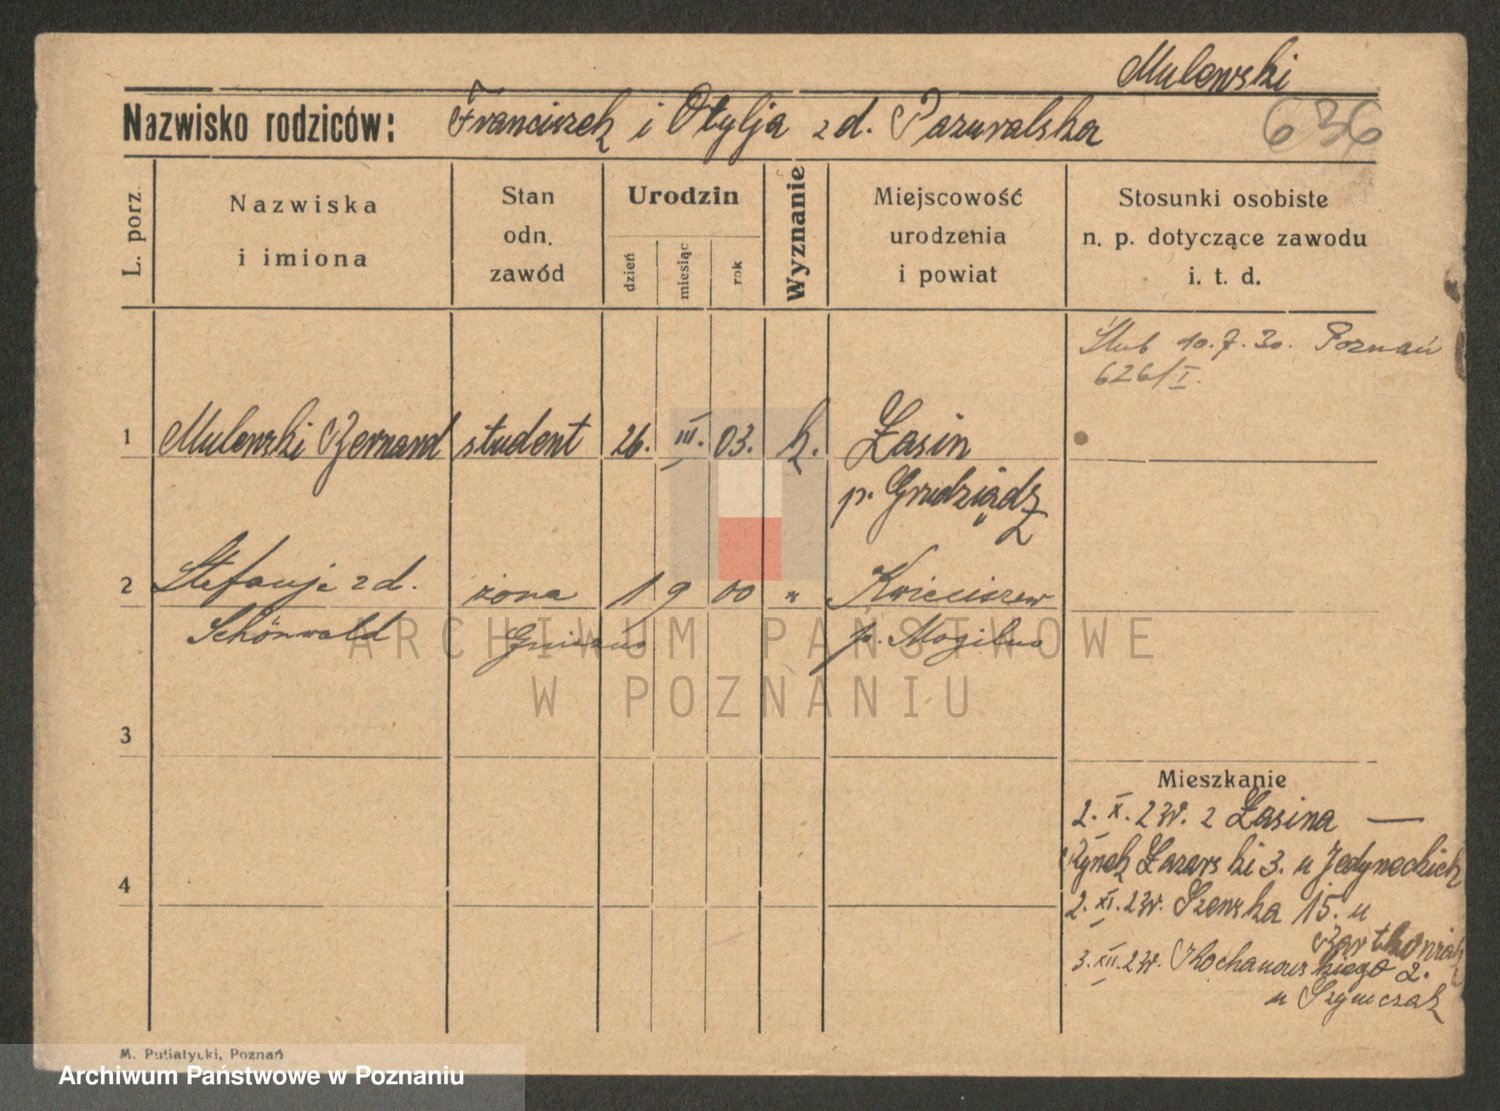 Mulewski
Nazwisko rodziców: Franciszek i Otylja z d. Pazuralska
636
L. porz.
Nazwiska
i imiona
Stan
odn.
zawód
Urodzin
dzień
miesiąc
rok
Wyznanie
Miejscowość
urodzenia
i powiat
Stosunki osobiste
n. p. dotyczące zawodu
i. t. d.
Ślub 10.7.30. Poznań
626/I.
1 Mulewski Bernard student 26. III. 03. k. Łasin
p. Grudziądz
2 Stefanja z d. żona 1 9 00 " Kwieciszew
Schönwald Gniezno p. Mogilno
3
4
Mieszkanie
2. X. 23r. z Łasina —
Rynek Łazarski 3. u Jedyneckich
2. XI. 23r. 15. u
Bartkowiak
3. XII. 23r. Kochanowskiego 2.
u Szymczak
M. Putiatycki, Poznań
ARCHIWUM PAŃSTWOWE
W POZNANIU
Archiwum Państwowe w Poznaniu